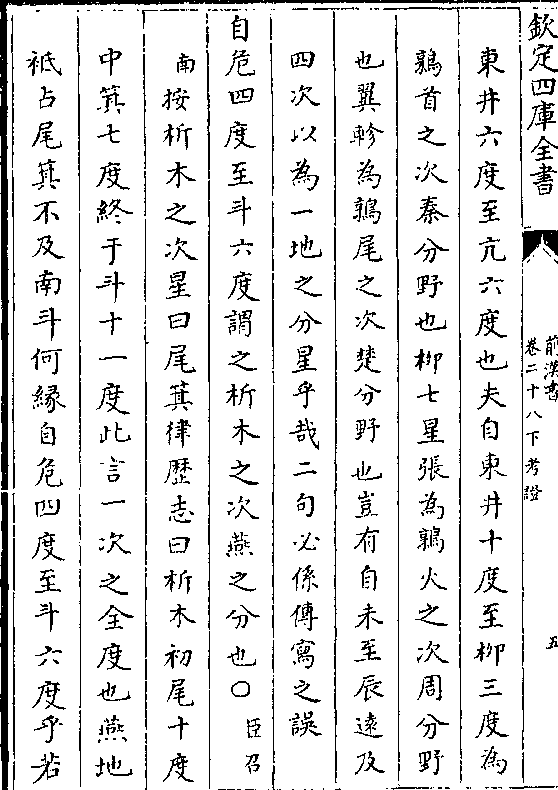 欽定四庫全書
前漢書
卷二十八下考證
五
東井六度至亢六度也夫自東井十度至柳三度為
鶉首之次秦分野也柳七星張為鶉火之次周分野
也翼軫為鶉尾之次楚分野也豈有自未至辰遠及
四次以為一地之分星乎哉二句必係傳寫之誤
自危四度至斗六度謂之析木之次燕之分也〇臣召
南按析木之次星曰尾箕律歷志曰析木初尾十度
中箕七度終于斗十一度此言一次之全度也燕地
祗占尾箕不及南斗何緣自危四度至斗六度乎若